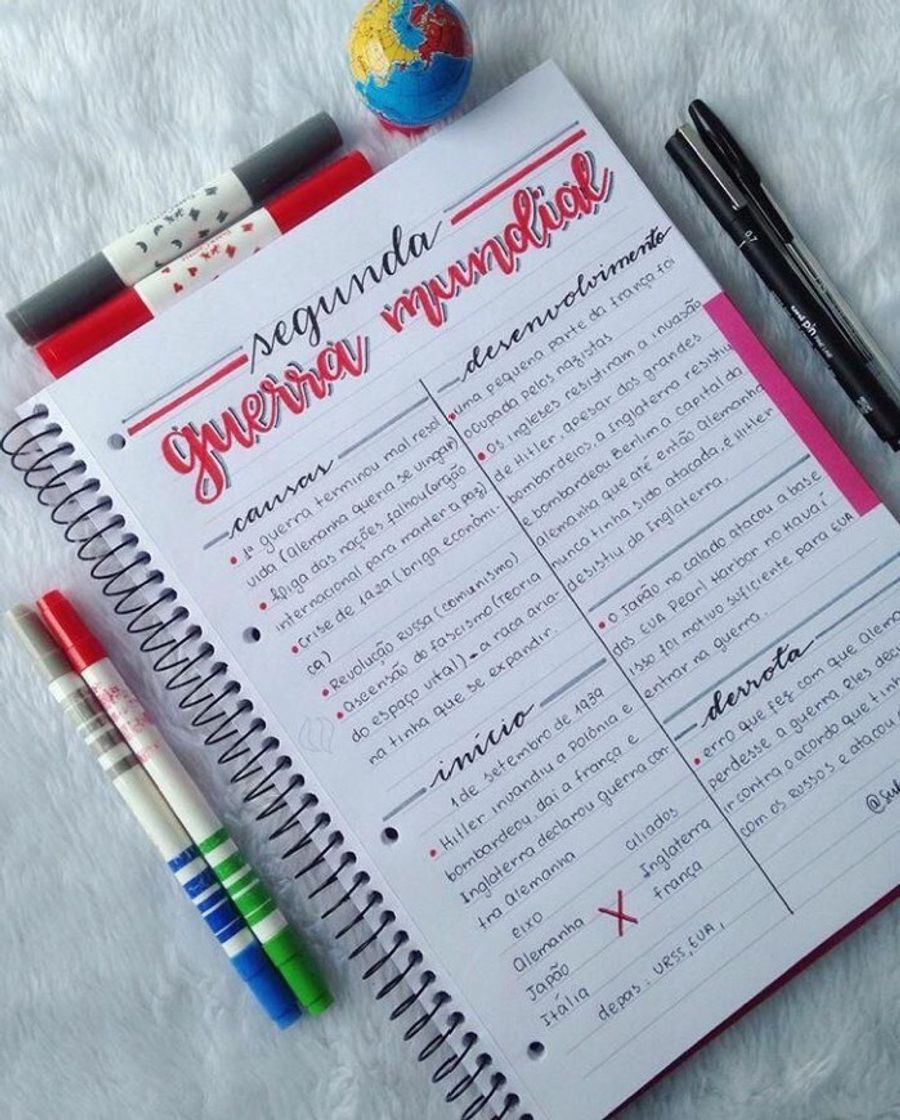 segunda
guerra mundial
causas
• 1ª guerra terminou mal resol
vida (Alemanha queria se vingar)
• Liga das nações falhou (orgão
internacional para manter a paz)
• Crise de 1929 (briga econômi-
ca)
• Revolução Russa (comunismo)
• ascensão do fascismo (Teoria
do espaço vital) → a raça aria-
na tinha que se expandir.
início
1 de setembro de 1939
• Hitler invandiu a Polônia e
bombardeou, daí a frança e
Inglaterra declarou guerra con-
tra Alemanha
eixo aliados
Alemanha X Inglaterra
Japão frança
Itália
depois: URSS, EUA,
desenvolvimento
• uma pequena parte da frança foi
ocupada pelos nazistas
• Os ingleses resistiram a invasão
de Hitler, apesar dos grandes
bombardeios, a Inglaterra resistiu
e bombardeou Berlim a capital da
Alemanha que até então Alemanha
nunca tinha sido atacada, e Hitler
desistiu da Inglaterra.
• O Japão no calado atacou a base
dos EUA Pearl Harbor no Havaí
isso foi motivo suficiente para EUA
entrar na guerra.
derrota
• erro que fez com que Alem
perdesse a guerra. Eles deci
ir contra o acordo que tinh
com os Russos e atacou
0.7
uni pin